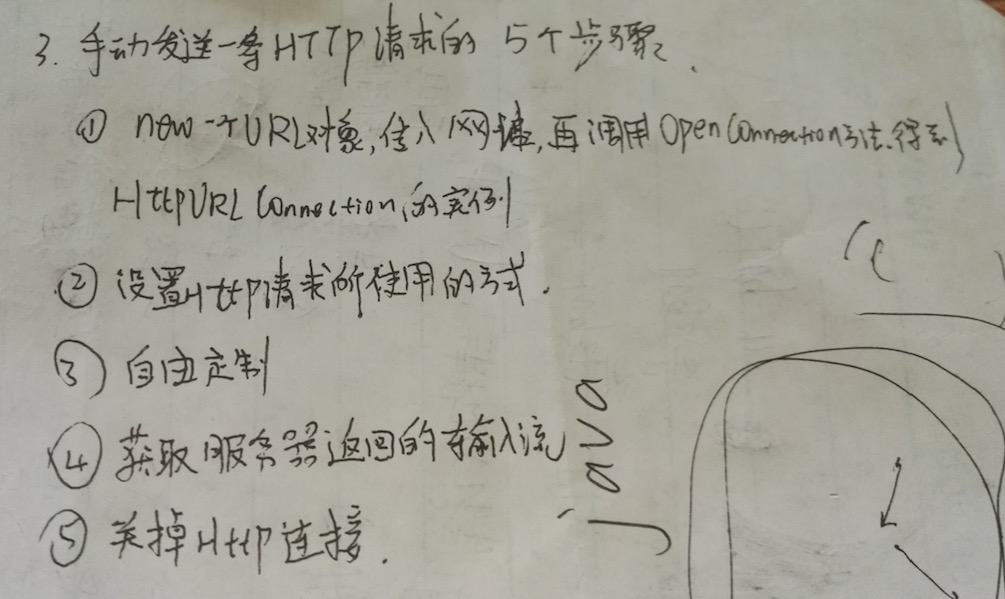 3. 手动发送一条HTTP请求的 5个步骤.
① new一个URL对象,传入网址,再调用OpenConnection方法.得到
HttpURLConnection的实例
② 设置Http请求所使用的方式.
③ 自由定制
④ 获取服务器返回的输入流
⑤ 关掉Http连接.
java